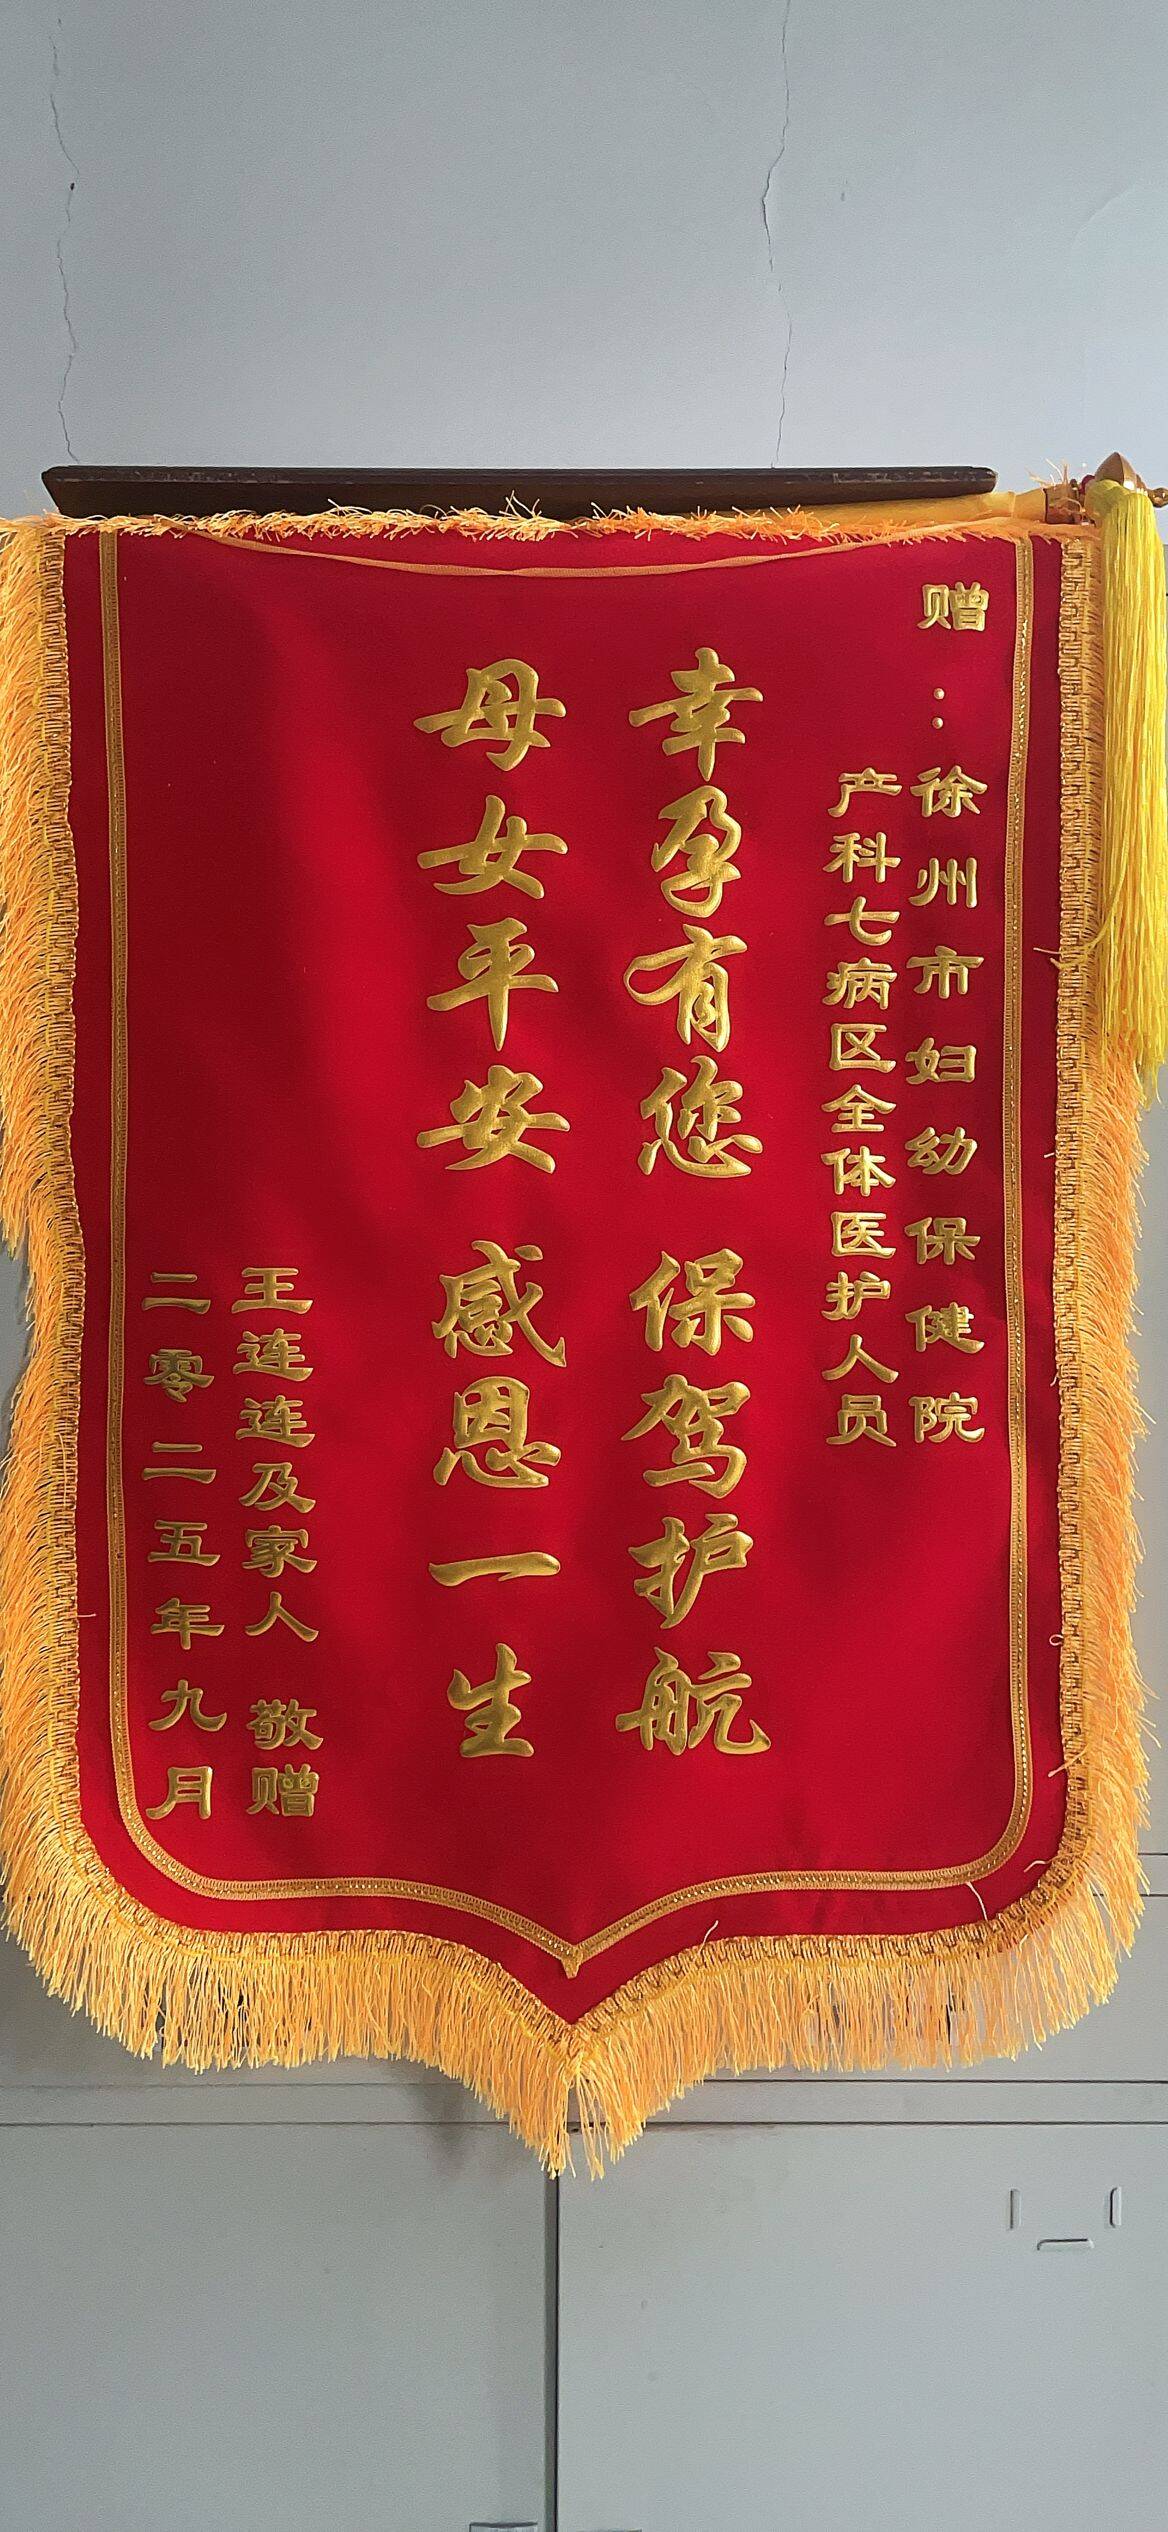 赠：徐州市妇幼保健院
产科七病区全体医护人员
幸孕有您 保驾护航
母女平安 感恩一生
王连连及家人 敬赠
二零二五年九月